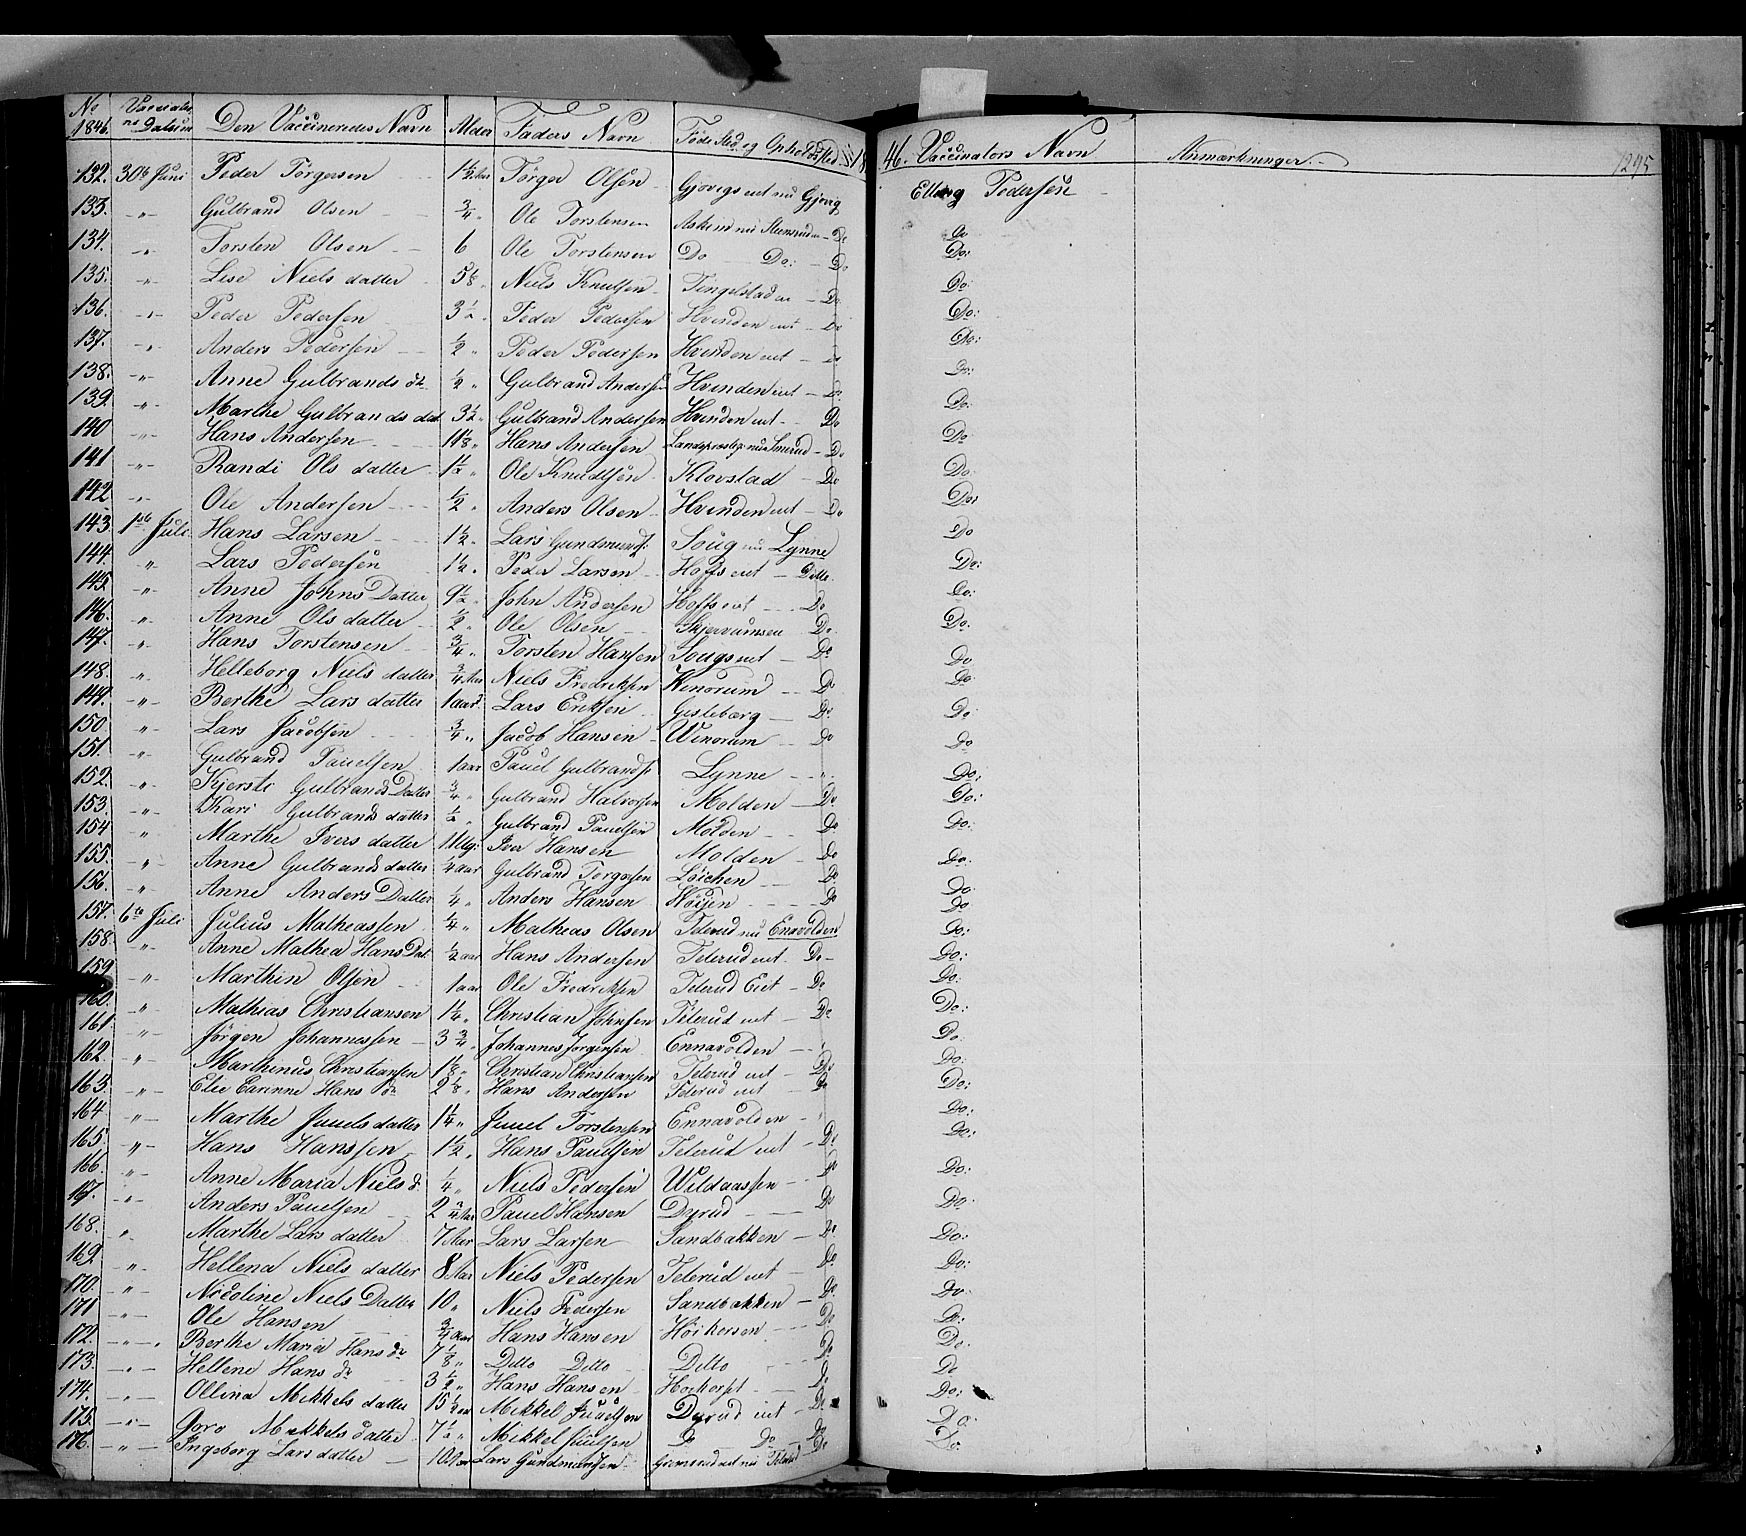 No 1846. Vaccinations Datum Den Vaccineredes Navn Alder Faders Navn Føde Sted og Opholdssted 18 46. Vaccinators Navn Anmærkninger 1295
132. 30te Juni Peder Törgersen 1½ Aar Törger Olsen Gjövigs eie nu Gjøvig Elling Pedersen
133. -"- Gulbrand Olsen ¾ " Ole Torstensen Do Do
134. -"- Torsten Olsen 6 Ole Torstensen Do Do: Do Do:
135. -"- Lise Niels datter Niels Knudsen Tingelstad Do Do:
136. -"- Peder Pedersen 3½ " Peder Pedersen Hvinden eiet Do Do:
137. " Anders Pedersen ½ " Peder Pedersen Hvinden eiet Do Do:
138. -"- Anne Gulbrands dt ½ " Gulbrand Andersen Hvinden eiet Do Do:
139. -"- Marthe Gulbrands dat 3½ " Gulbrand Andersen Hvinden eiet Do Do:
140 -"- Hans Andersen 1⅛ " Hans Andersen Do Do
141 -"- Randi Ols datter 1½ " Ole Knudsen Klovstad Do Do
142 -"- Ole Andersen ½ " Anders Olsen Hvinden eiet Do Do:
143. 1ste Juli Hans Larsen 1½ " Lars Gundmunds: Soug nu Lynne Do
144. " Lars Pedersen 1½ " Peder Larsen Hoffs eiet Ditto Do:
145. " Anne Johns Datter 9½ " John Andersen Hoffs eiet Do Do:
146. " Anne Ols datter ½ " Ole Olsen Skjervumseie Do Do:
147. " Hans Torstensen ¾ " Torsten Hansen Sougs eiet Do Do
148. " Helleborg Niels datter ¾ Aar Niels Fredriksen Winorum Do Do
149. -"- Berthe Lars datter 1 aar Lars Eriksen Gisleberg Do Do
150 -"- Lars Jacobsen ¾ " Jacob Hansen Winorum Do Do
151. -"- Gulbrand Pauelsen 1 aar Pauel Gulbrands: Lynne " Do:
152. -"- Kjersti Gulbrands Datter ¾ " Gulbrand Halvorsen Molden Do Do:
153. " Kari Gulbrands datter ½ " Gulbrand Pauelsen Molden Do Do:
154 " Marthe Ivers datter Iver Hansen Molden Do Do:
155. -"- Anne Gulbrands datter ¼ aar Gulbrand Torgersen Löichen Do Do
156. " Anne Anders Datter ¼ " Anders Hansen Do Do
157. 6te Juli Julius Matheassen ¼ " Matheas Olsen Telerud nu Ennavolden Do:
158. -"- Anne Mathea Hans Dat ½ aar Hans Andersen Telerud eiet Do Do:
159 -"- Marthin Olsen 1 aar Ole Fredriksen Telerud Eiet Do Do:
160. " Mathias Christiansen 1¼ " Christian Johnsen Telerud eiet Do Do:
161. -"- Jörgen Johannessen 3¾ " Johannes Jorgensen Ennavolden Do
162. " Marthinus Christiansen 1⅛ " Christian Christiansen Telerud eiet Do Do:
163. -"- Elie Carinne Hans dr 2⅛ " Hans Andersen Telerud eiet Do Do:
164 -"- Marthe Juuels datter 1¼ " Juuel Torstensen Ennavolden Do:
165. -"- Hans Hanssen 1½ " Hans Pauelsen Telerud eiet Do Do:
166. -"- Anne Maria Niels d. ¼ " Niels Pedersen Wildaassen Do Do:
167. -"- Anders Pauelsen Pauel Hansen Dyrud Do Do:
168. " Marthe Lars datter 7 Aar Lars Larsen Sandbakken Do Do:
169. -"- Hellena Niels datter 8 Aar Niels Pedersen Telerud eiet Do Do:
170. -"- Nicoline Niels Datter 10 " Niels Pedersen Sandbakken Do Do:
171 -"- Ole Hansen ¾ aar Hans Hansen Do Do:
172. -"- Berthe Maria Hans dr 7⅛ " Ditto Ditto Ditto Do Do:
173. -"- Hellene Hans dr 3½ " Hans Hansen Do Do
174. -"- Ollina Mikkels datter 15½ " Mikkel Juuelsen Dyrud eiet Do Do:
175. -"- Goro Mekkels datter 7½ " Mikkel Juuelsen Do Do Do Do:
176. -"- Ingeborg Lars datter 10 Aar Lars Gundmundsen Telerud Do: